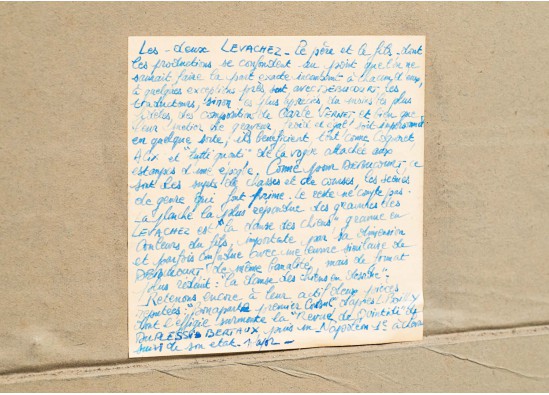 Les deux LEVACHEZ - Le père et le fils - dont
les productions se confondent au point que l'on ne
saurait faire la part exacte incombant à chacun d'eux,
à quelques exceptions près sont avec DEBUCOURT, les
traducteurs, sinon les plus précis du moins les plus
fidèles des compositions de Carle VERNET et bien que
leur métier de graveur froid et soit impersonnel
en quelque sorte, ils bénéficient tout comme Coqueret
ALIX et "tutti quanti" de la vogue attachée aux
estampes d'une époque. Comme pour DEBUCOURT, ce
sont des sujets de chasses et de courses, les scènes
de genre qui font prime. Le reste ne compte pas.
La planche la plus répandue des gravures des
LEVACHEZ est "la danse des chiens" gravure en
couleurs du fils, importante par sa dimension
et parfois confondue avec une œuvre similaire de
DEBUCOURT de même banalité, mais de format
plus réduit: "la danse des chiens en désordre".
Retenons encore à leur actif deux pièces
"Bonaparte premier Consul" d'après Boilly
dont l'effigie surmonte la "Revue de Quintidi" de
DUPLESSIS BERTAUX, puis un Napoléon 1er à cheval
suivi de son état-major -